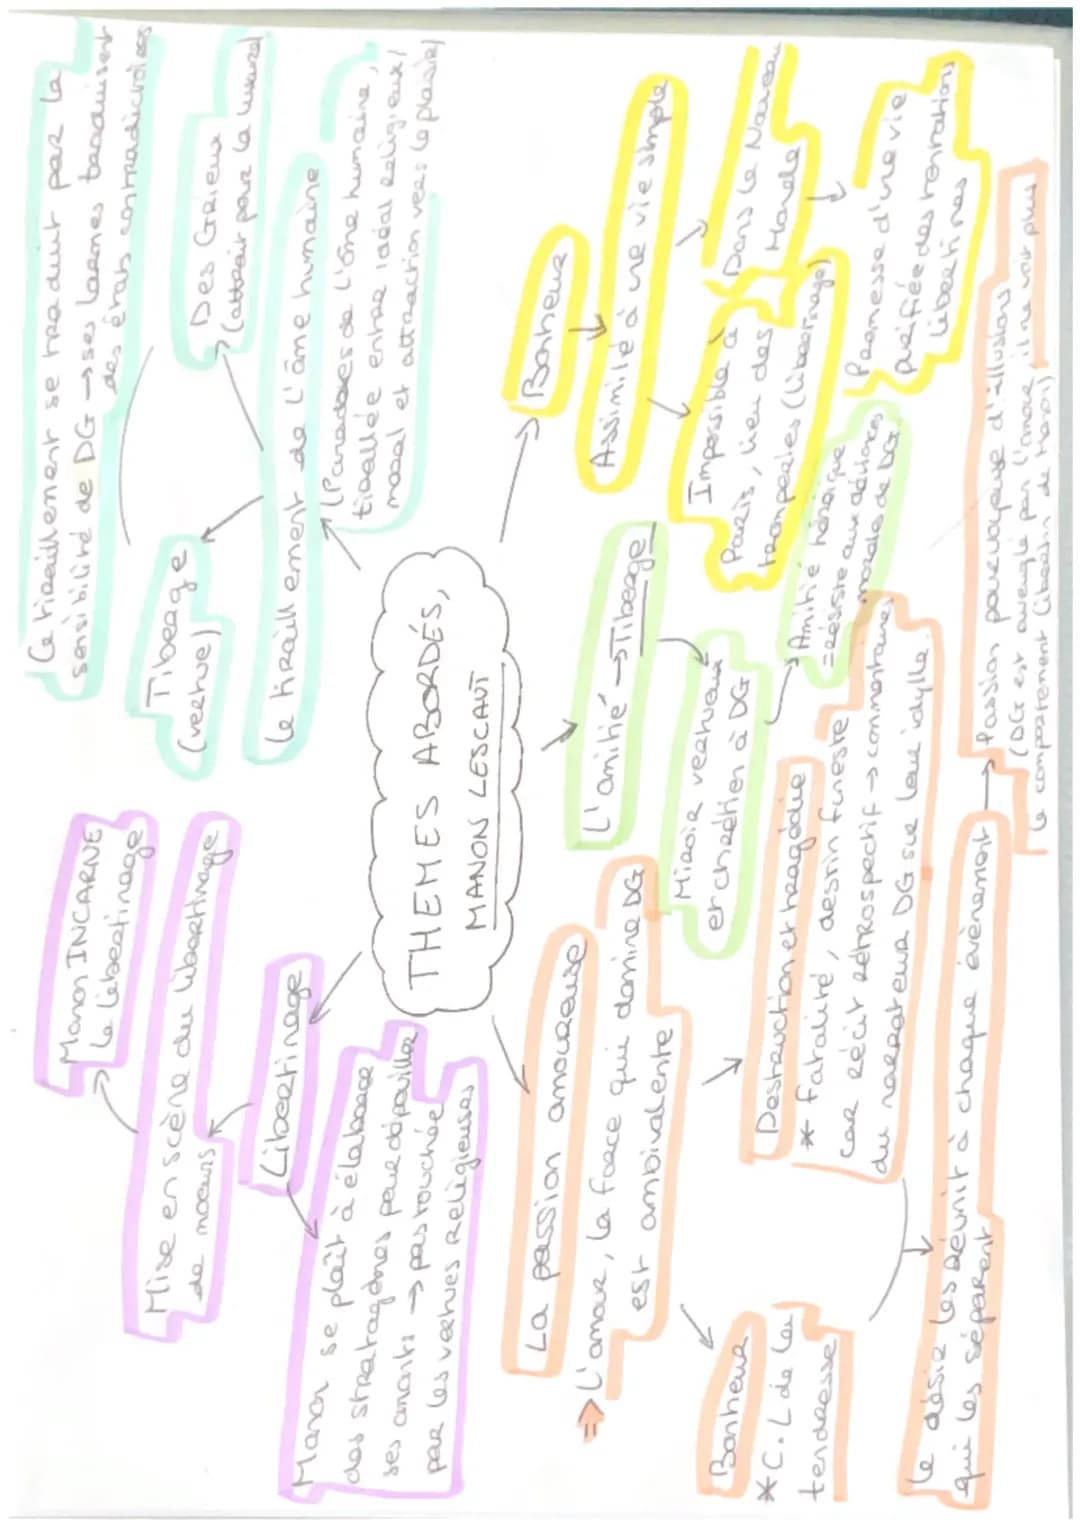 THEMES ABORDÉS,
MANON LESCAUT
Libertinage
Mise en scène du libertinage
de moeurs
Manon INCARNE
le libertinage
Manon se plaît à élaborer
des stratagèmes pour dépouiller
ses amants → pas touchée
par les vertues religieuses
Le tiraillement de l'âme humaine
(Paradoxes de l'âme humaine,
tiraillée entre idéal religieux/
moral et attraction vers le plaisir)
Tiberge
(vertue)
Des Grieux
(attrait pour la luxure)
Ce tiraillement se traduit par la
sensibilité de DG → ses larmes traduisent
des états contradictoires
La passion amoureuse
⇒ L'amour, la force qui domine DG
est ambivalente
Bonheur
* C.L de la
tendresse
Destruction et tragédie
* Fatalité, destin funeste
car récit rétrospectif → commentaires
du narrateur DG sur leur idylle.
Le désir les réunit à chaque évènement
qui les séparent
→ Passion pourvoyeuse d'illusions
(DG est aveuglé par l'amour, il ne voit plus
le comportement libertin de Manon)
L'amitié → Tiberge
Miroir vertueux
et chrétien à DG
Amitié héroïque
= résiste aux déviances
morales de DG
Bonheur
Assimilé à une vie simple
Impossible à
Paris, lieu des
tromperies (libertinage)
Dans le Nouveau
Monde
Promesse d'une vie
purifiée des tentations
libertines